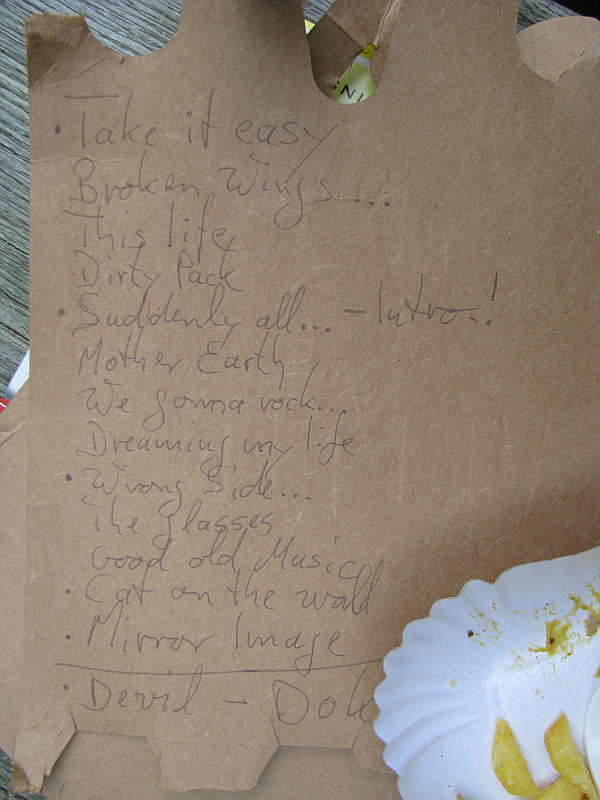 • Take it easy
Broken Wings...
This life
Dirty Pack
• Suddenly all... - Intro.!
Mother Earth
We gonna rock...
Dreaming my life
• Wrong Side...
The glasses
Good old Music
• Cat on the wall
• Mirror Image
• Devil -